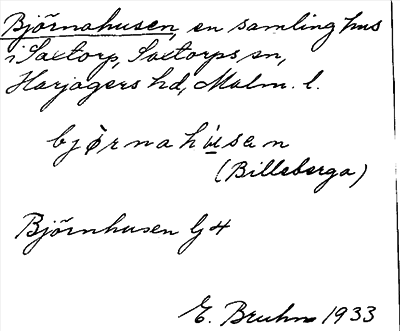 Björnahusen, en samling hus
i Saxtorp, Saxtorps sn,
Harjagers hd, Malm. l.
bjòrnahu̇sen
(Billeberga)
Björnhusen Gj 4
E. Bruhn 1933